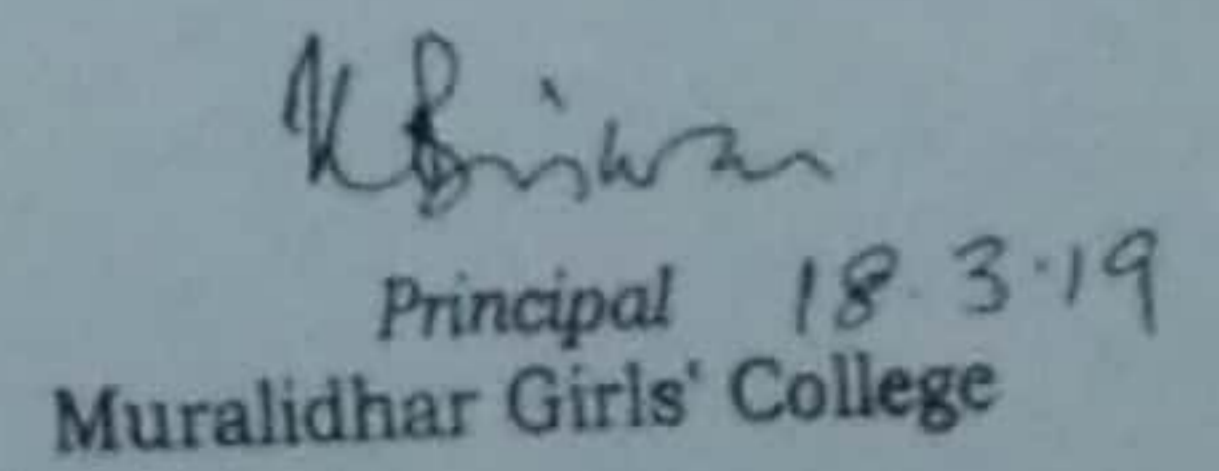 K Biswas
Principal 18.3.19
Muralidhar Girls' College